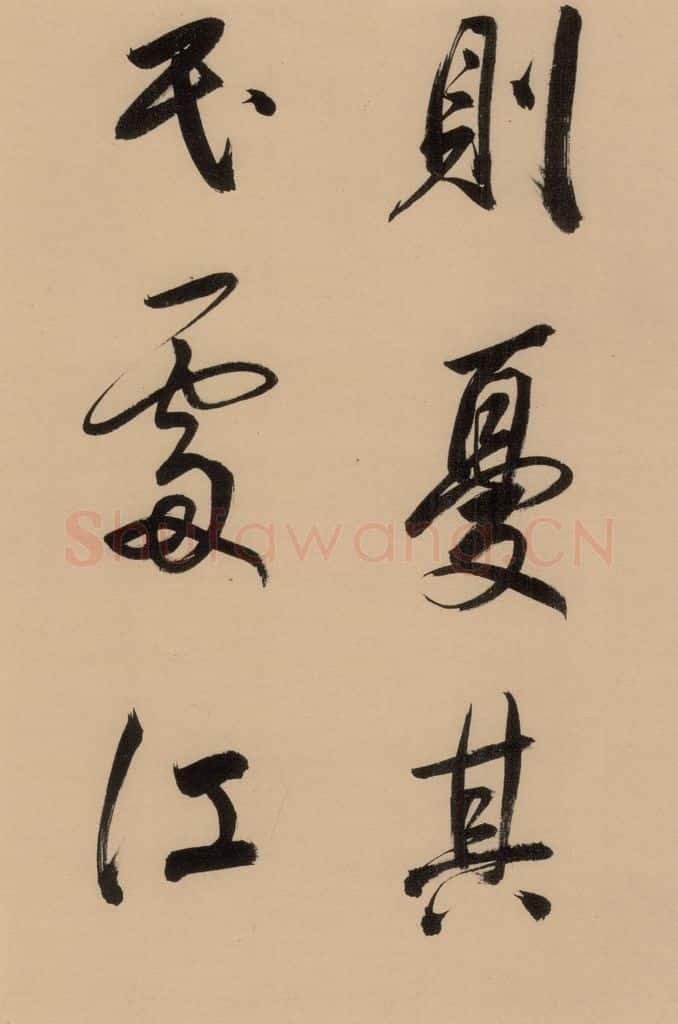 則憂其
民處江
Shufawang.CN